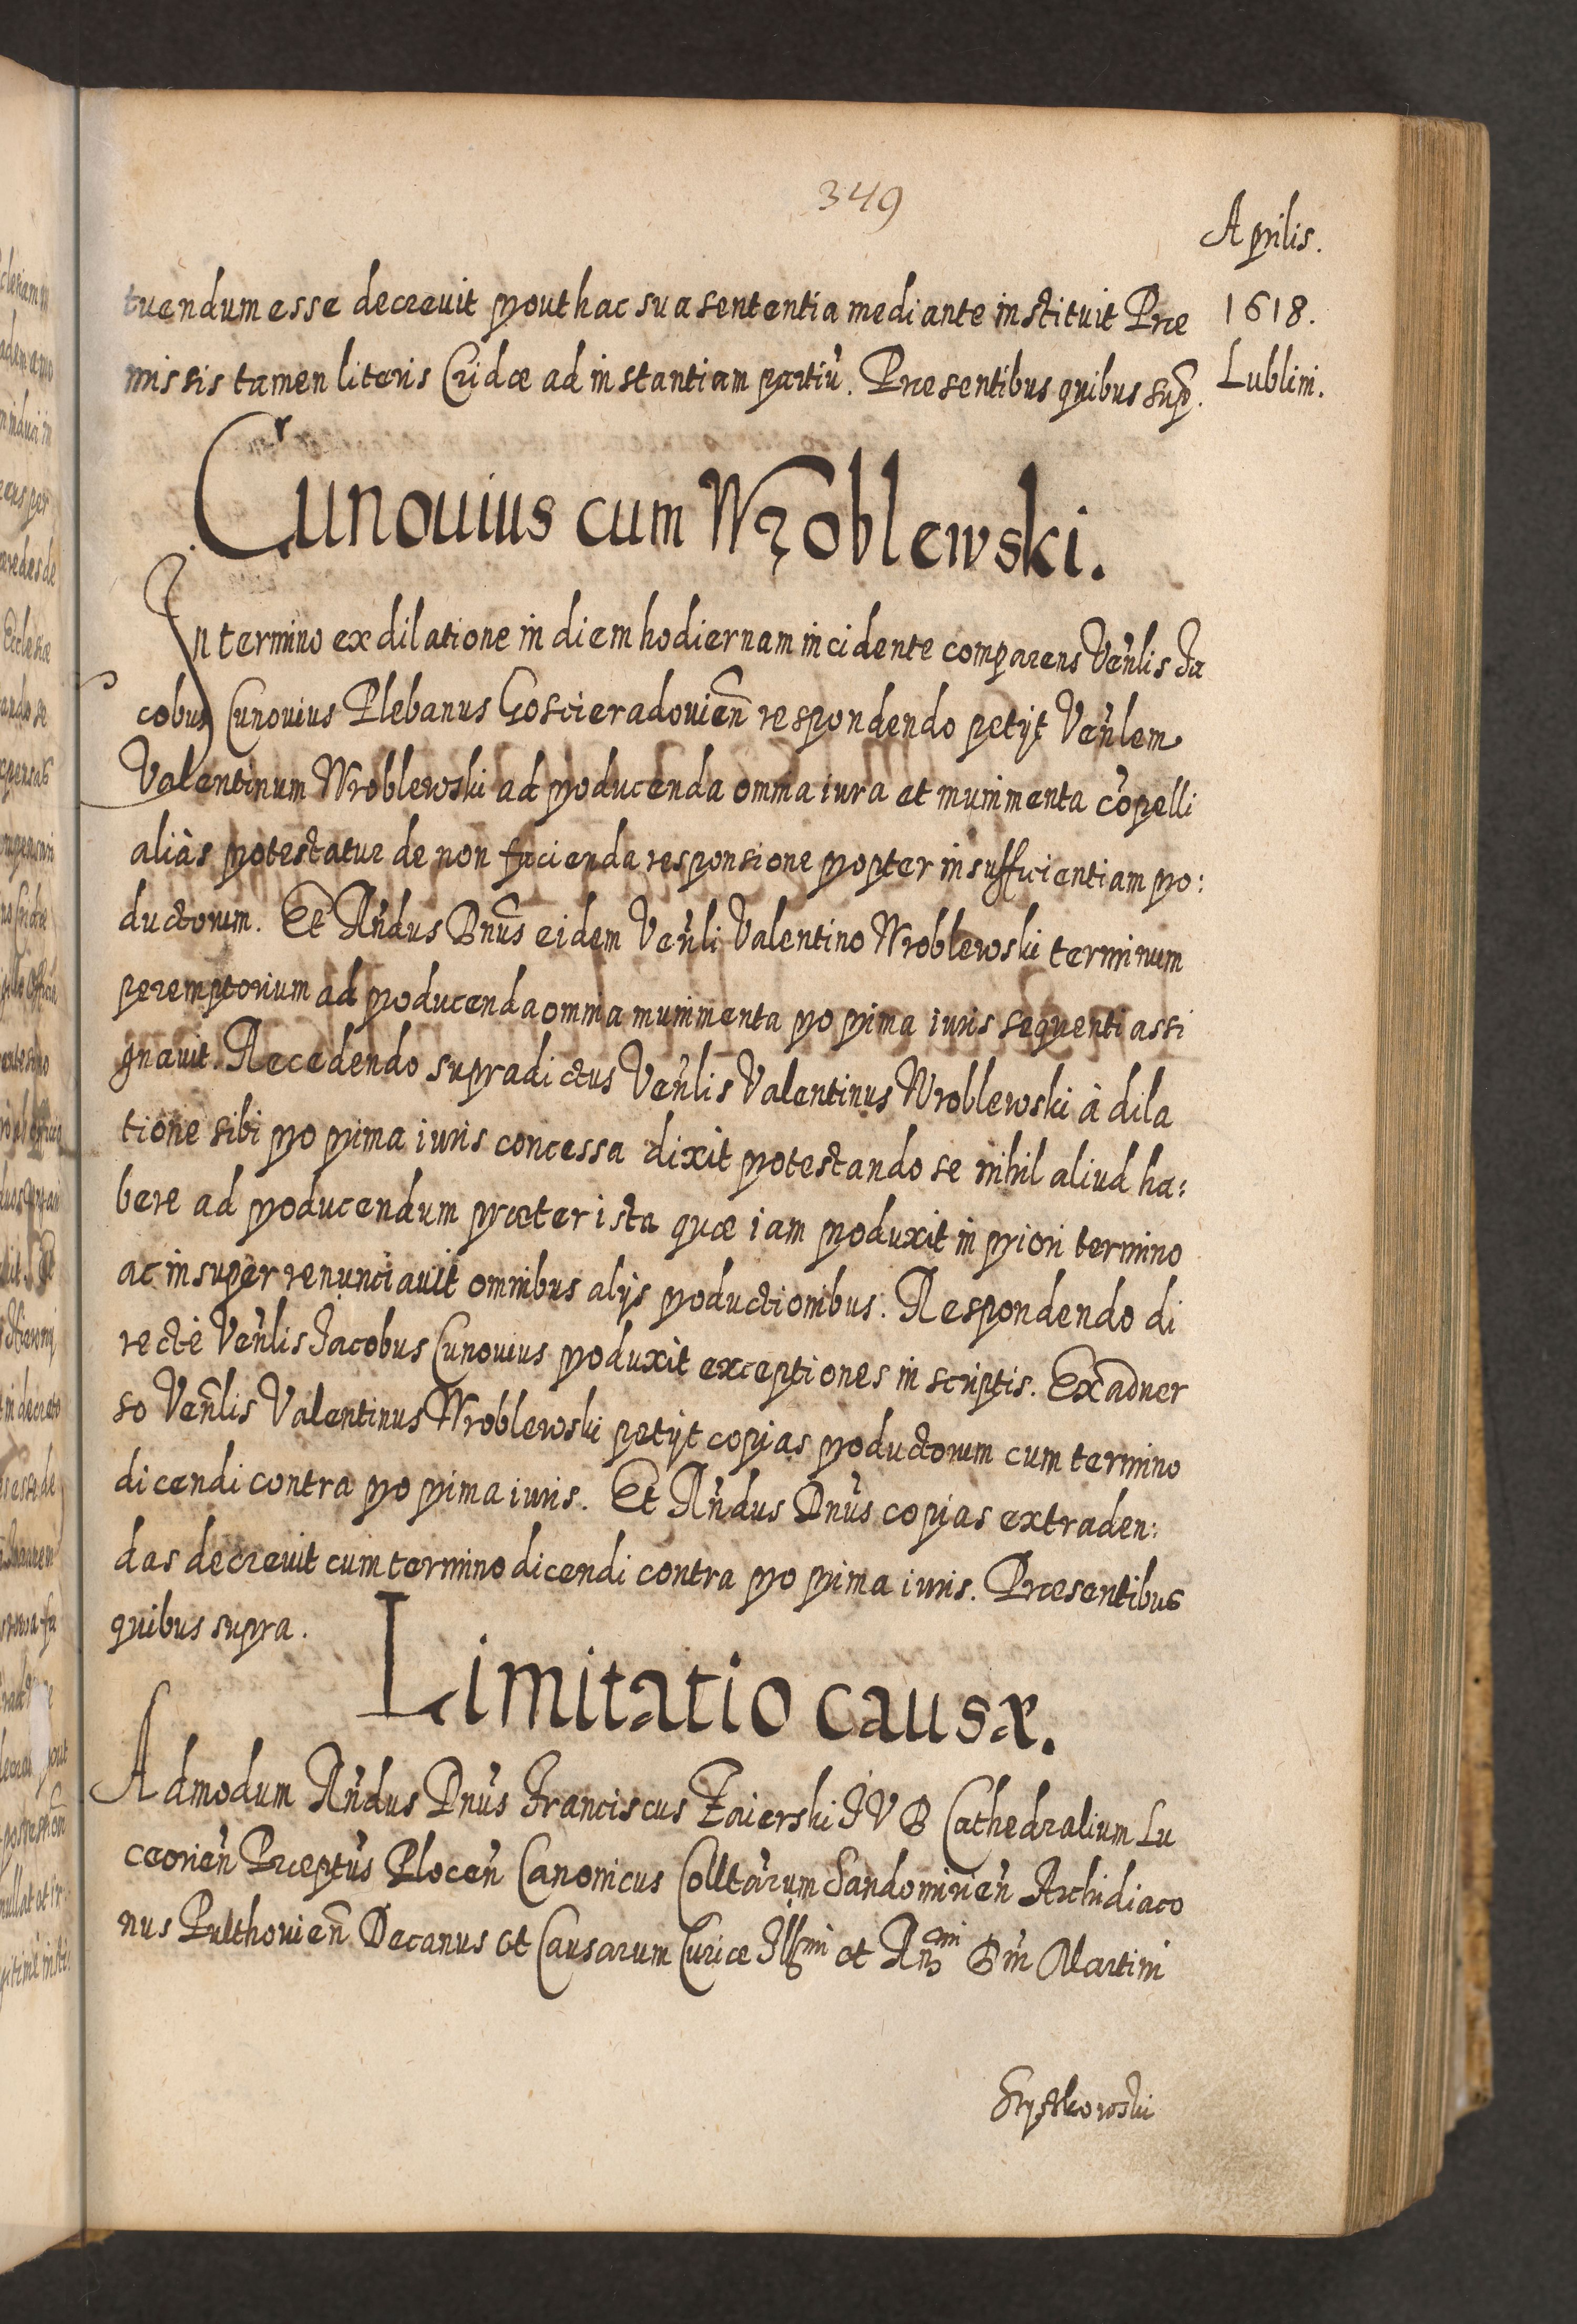 349
Aprilis.
1618.
Lublini.
tuendum esse decreuit prout hac sua sententia mediante instituit Præ
missis tamen literis Cridæ ad instantiam partiũ. Præsentibus quibus sup.
Cunouius cum Wroblewski.
In termino ex dilatione in diem hodiernam incidente comparens Venlis Ja
cobus Cunouius Plebanus Goscieradouien respondendo petijt Venlem
Valentinum Wroblewski ad producenda omnia iura et munimenta cõpelli
aliàs protestatur de non facienda responsione propter insufficientiam pro:
ductorum. Et Rndus Dnus eidem Venli Valentino Wroblewski terminum
peremptorium ad producenda omnia munimenta pro prima iuris sequenti assi
gnauit. Recedendo supradictus Venlis Valentinus Wroblewski à dila
tione sibi pro prima iuris concessa dixit protestando se nihil aliud ha:
bere ad producendum præter ista quæ iam produxit in priori termino
ac insuper renunciauit omnibus alijs productionibus. Respondendo di
rectè Venlis Jacobus Cunouius produxit exceptiones in scriptis. Ex aduer
so Venlis Valentinus Wroblewski petijt copias productorum cum termino
dicendi contra pro prima iuris. Et Rndus Dnus copias extraden:
das decreuit cum termino dicendi contra pro prima iuris. Præsentibus
quibus supra.
Limitatio causæ.
Admodum Rndus Dnus Franciscus Zaierski JVD Cathedralium Lu
ceorien Præptus Plocen Canonicus Colltarum Sandomirien Archidiaco
nus Pulthouien Decanus et Causarum Curiæ Illmi et Rndmi Dni Martini